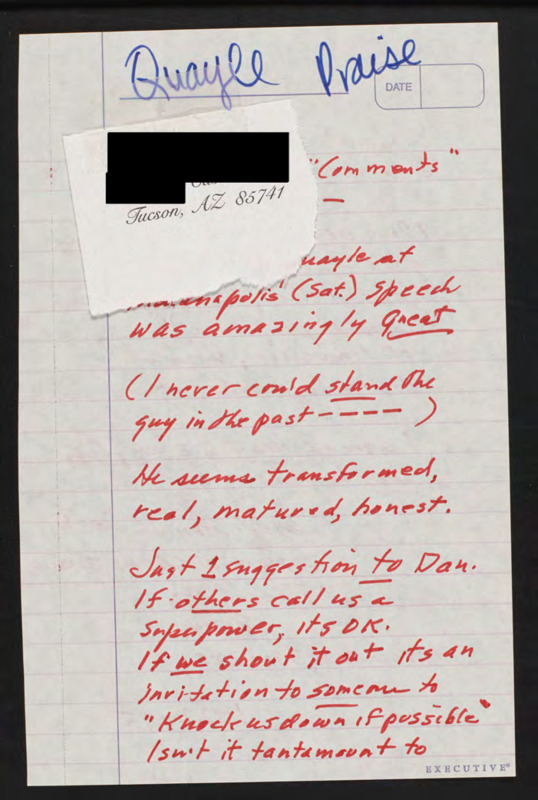 Quayle Praise
DATE
"Comments"
Tucson, AZ 85741
—
uayle at
anapolis' (Sat.) Speech
was amazingly great
(I never could stand the
guy in the past ---- )
He seems transformed,
real, matured, honest.
Just 1 suggestion to Dan.
If others call us a
superpower, its OK.
If we shout it out its an
invitation to someone to
"Knock us down if possible"
Isn't it tantamount to
EXECUTIVE®